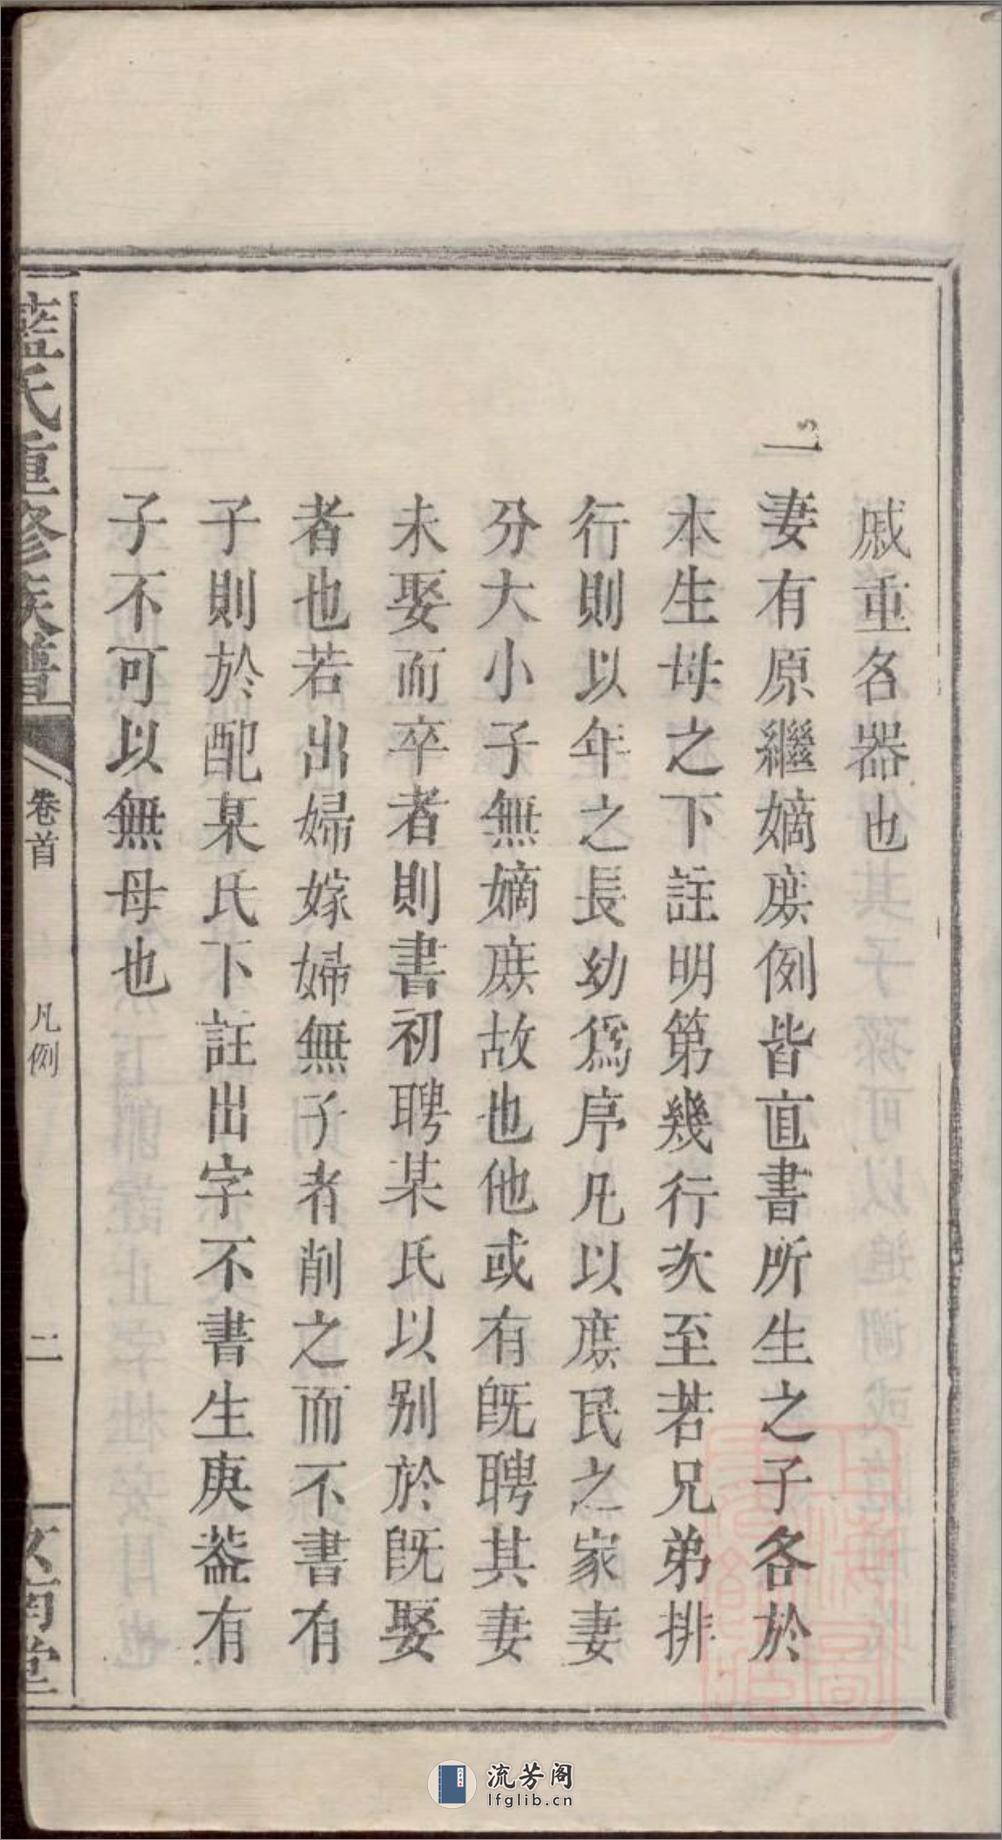 戚重名器也
一妻有原繼嫡庶例皆直書所生之子各於
本生母之下註明第幾行次至若兄弟排
行則以年之長幼爲序凡以庶民之家妻
分大小子無嫡庶故也他或有旣聘其妻
未娶而卒者則書初聘某氏以别於旣娶
者也若出婦嫁婦無子者削之而不書有
子則於配某氏下註出字不書生庚葢有
子不可以無母也
藍氏重修族譜
卷首
凡例
二
流芳阁
lfglib.cn